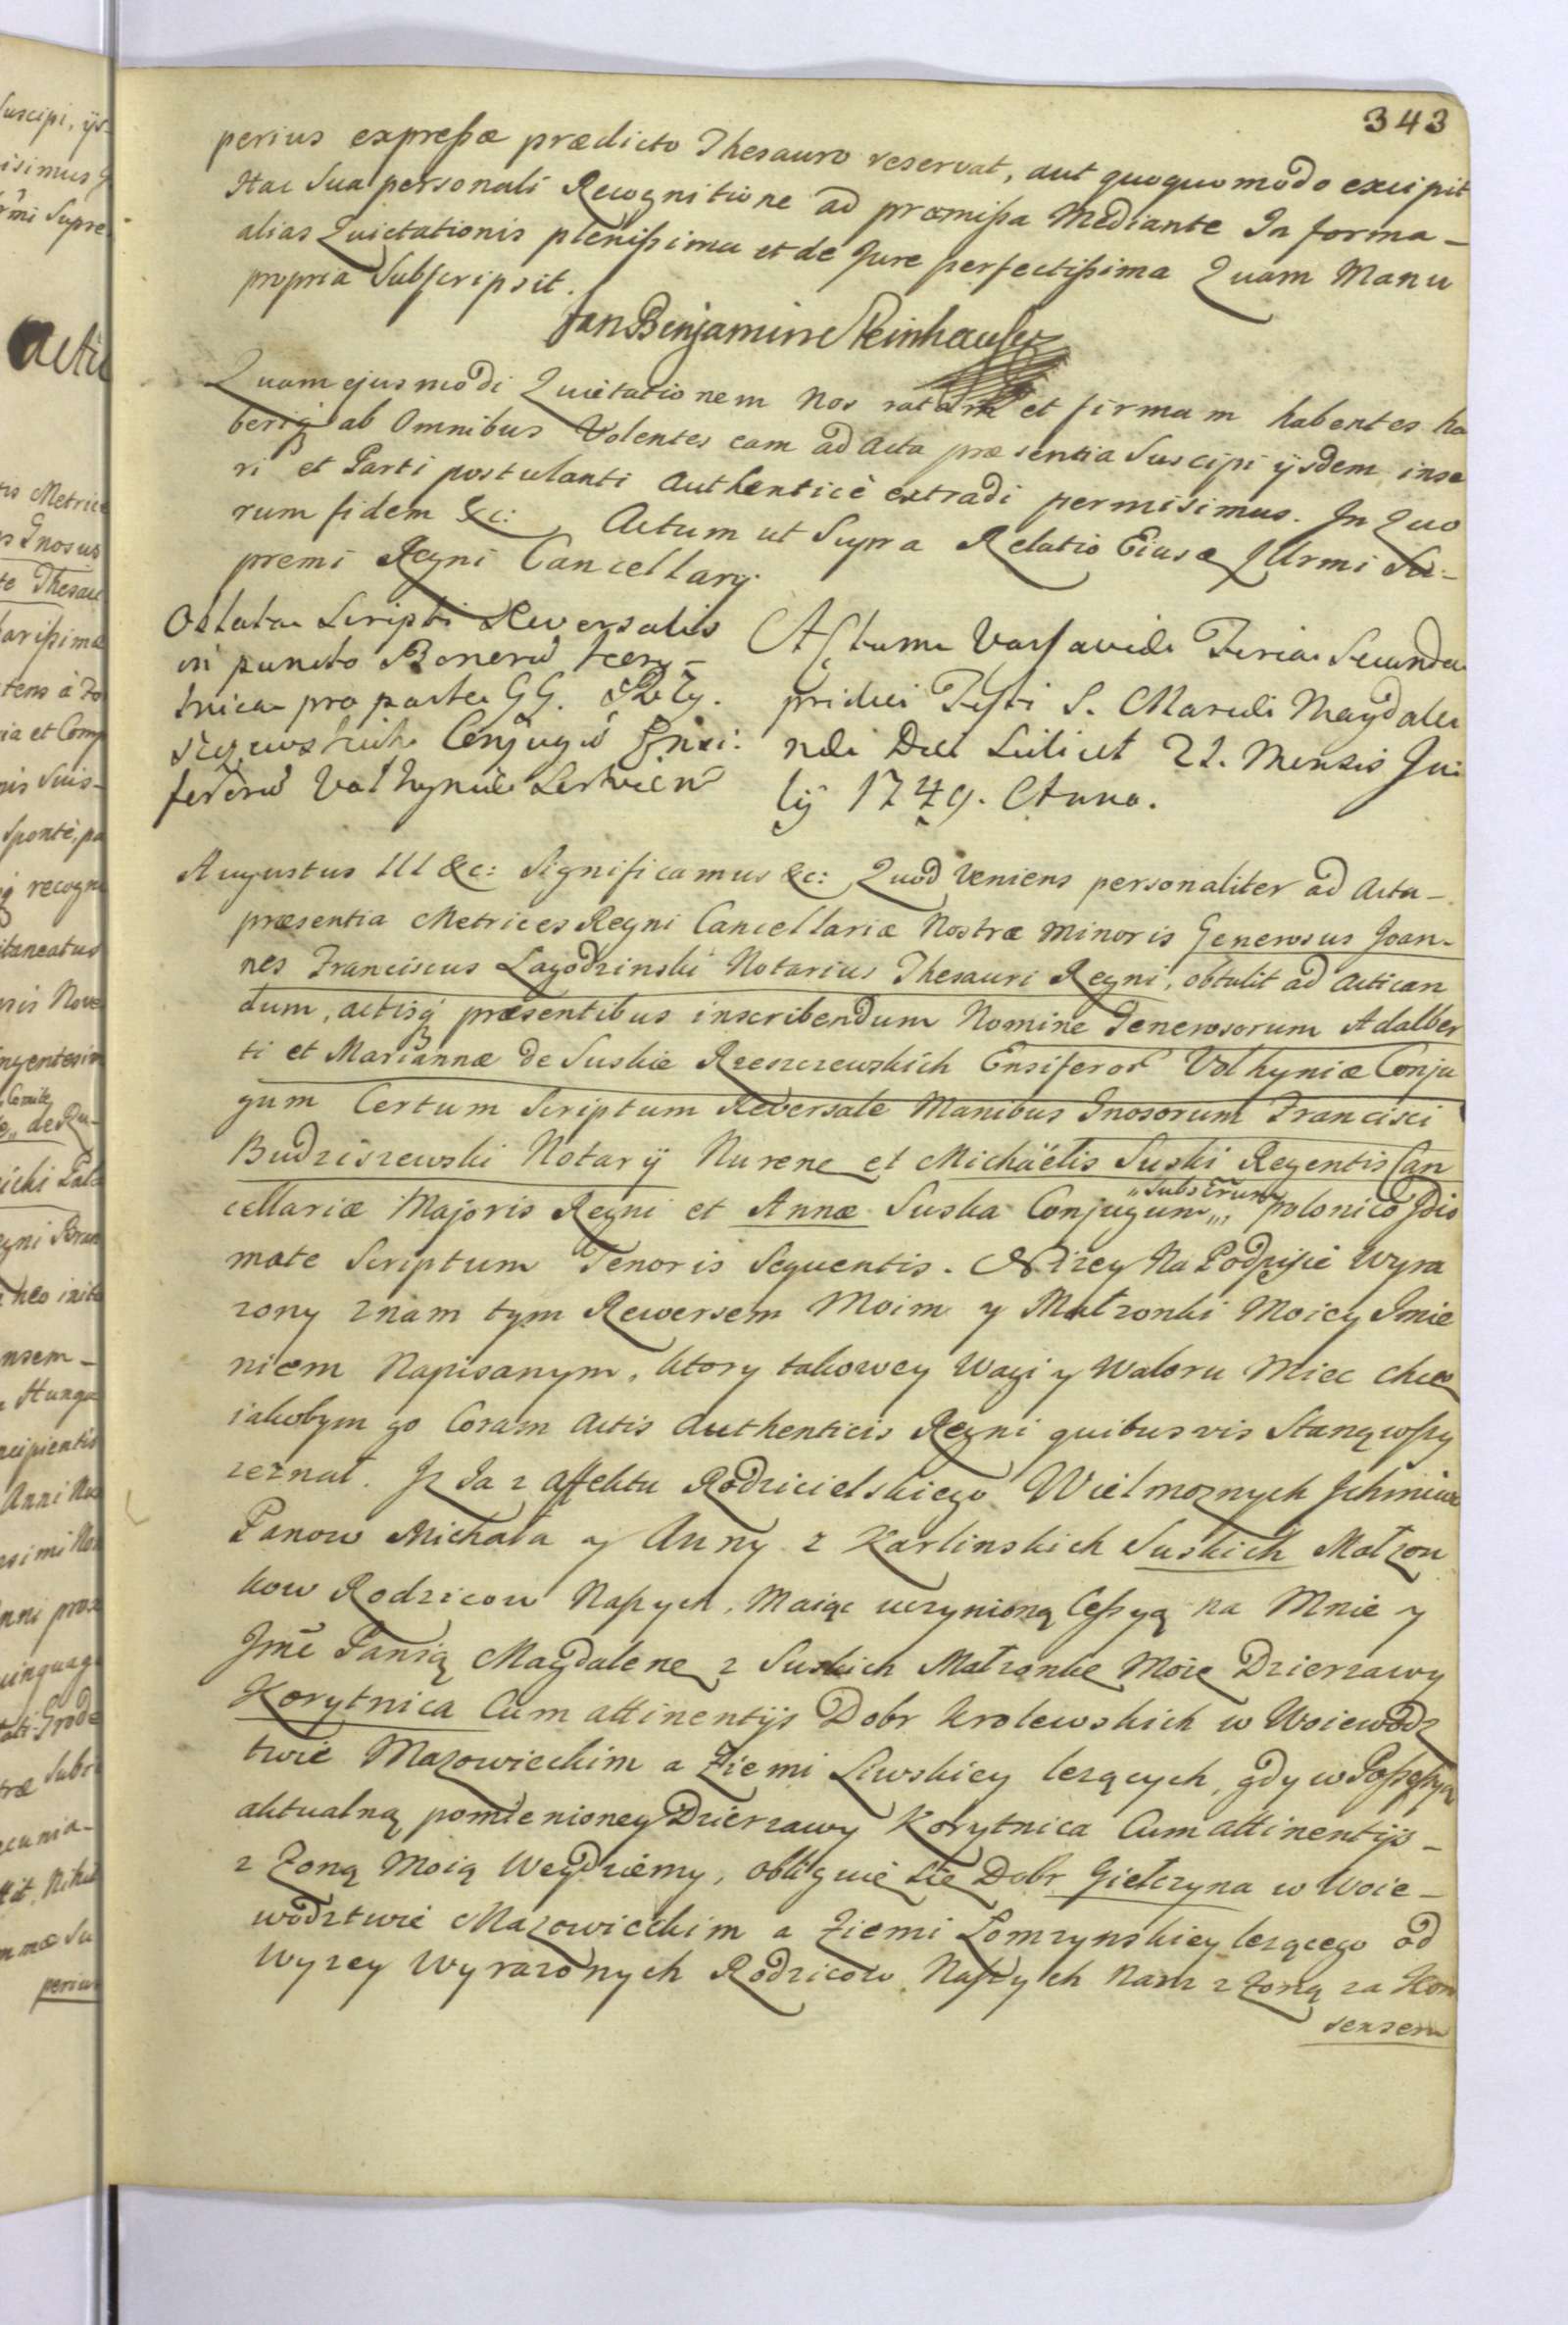 343
perius expreſsæ prædicto Thesauro reservat, aut quoquomodo excipit
Hac Sua personali Recognitione ad præmiſsa Mediante In forma -
alias Quietationis pleniſsima et de Jure perfectiſsima Quam Manu
propria Subſcripsit.
Jan Benjamin Steinhauser
Quam ejusmodi Quietationem Nos ratam et firmam habentes ha
beriq ab Omnibus Volentes eam ad Acta præsentia Suscipi ijsdem inse
ri et Parti postulanti Authenticè extradi permisimus. In Quo
rum fidem &c: Actum ut Supra Relatio Eiusd Illrmi Su-
premi Regni Cancellarij.
Oblata Scripti Reversalis
in puncto Bonorū Kory-
tnica pro parte GG.
szczewskich Conjugū Ensi:
ferorū Volhyniæ
Actum Varſaviæ Feria Secunda
pridiei Feſti S. Mariæ Magdale
næ Die Scilicet 21. Mensis Ju
lij 1749. Anno.
Augustus III &c: Significamus &c: Quod Veniens personaliter ad Acta -
præsentia Metrices Regni Cancellariæ Nostræ Minoris Generosus Joan-
nes Franciscus Lagodzinski Notarius Thesauri Regni, obtulit ad Actican
dum, actisq præsentibus inscribendum Nomine Generosorum Adalber
ti et Mariannæ de Suskie Rzeszczewskich Ensiferor Volhyniæ Conju
gum Certum Scriptum Reversale Manibus Gnosorum Francisci
Budziszewski Notarij Nurenc et Michäelis Suski Regentis Can
cellariæ Majoris Regni et Annæ Suska Conjugum „ Subscrum „ polonico Jdio
mate Scriptum Tenoris Sequentis. Nizey Na Podpisie Wyra
zony znam tym Rewersem Moim y Małzonki Moiey Jmie
niem Napisanym, ktory takowey Wagi y Waloru Miec chcę
iakobym go Coram Actis Authenticis Regni quibusvis Stanąwſzy
zeznał. Jz Ja z Affektu Rodzicielskiego Wielmoznych Jchmciow
Panow Michała y Anny z Karlinskich Suskich Małzon
kow Rodzicow Naſzych, Maiąc uczynioną Ceſsyą na Mnie y
Jmć Panią Magdalenę z Suskich Małzonkę Moię Dzierzawy
Korytnica Cum attinentijs Dobr krolewskich w Woiewodz
twie Mazowieckim a Ziemi Liwskiey lezących, gdy w Poſseſsyą
aktualną pomienioney Dzierzawy Korytnica Cum attinentijs -
z Zoną Moią Weydziemy, obliguię się Dobr Giełczyna w Woie -
wodztwie Mazowieckim a Ziemi Łomzynskiey lezącego od
Wyzey Wyrazonych Rodzicow Naſzych Nam z Zoną za Kon
sensem